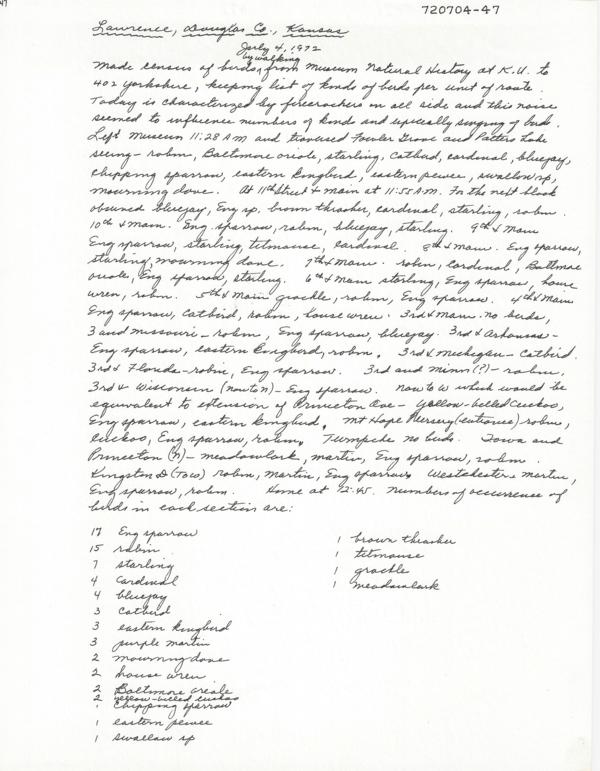 47
720704-47
Lawrence, Douglas Co., Kansas
July 4, 1972
by walking
Made census of birds, from Museum Natural History at K.U. to
402 Yorkshire, keeping list of kinds of birds per unit of route.
Today is characterized by firecrackers on all side and this noise
seemed to influence numbers of kinds and especially singing of birds.
Left Museum 11:28 AM and traversed Fowler Grove and Potters Lake
seeing - robin, Baltimore oriole, starling, Catbird, cardinal, bluejay,
chipping sparrow, eastern kingbird, eastern pewee, swallow sp,
mourning dove. At 11th Street & Main at 11:55 A.M. In the next block
observed bluejay, Eng sp. brown thrasher, cardinal, starling, robin.
10th & Main. Eng. sparrow, robin, bluejay, starling. 9th & Main
Eng sparrow, starling, titmouse, cardinal. 8th & Main. Eng sparrow,
starling, mourning dove. 7th & Main. robin, Cardinal, Baltimore
oriole, Eng sparrow, starling. 6th & Main starling, Eng sparrow, house
wren, robin. 5th & Main grackle, robin, Eng sparrow. 4th & Main
Eng sparrow, Catbird, robin, house wren. 3rd & Main. no birds,
3 and Missouri - robin, Eng sparrow, bluejay. 3rd & Arkansas -
Eng sparrow, eastern kingbird, robin. 3rd & Michigan - Catbird.
3rd & Florida - robin, Eng sparrow. 3rd and Minn (?) - robin,
3rd & Wisconsin (now to N) - Eng sparrow. Now to W which would be
equivalent to extension of Princeton Ave - Yellow-billed Cuckoo,
Eng sparrow, eastern kingbird. Mt Hope Nursery (entrance) robin,
Cuckoo, Eng sparrow, robin. Turnpike no birds. Iowa and
Princeton (N) - meadowlark, martin, Eng sparrow, robin.
Kingston D (to W) robin, martin, Eng sparrow. Westchester martin,
Eng sparrow, robin. Home at 12:45. Numbers of occurrence of
birds in each section are:
17 Eng sparrow
15 robin
7 starling
4 Cardinal
4 bluejay
3 Catbird
3 eastern kingbird
3 purple martin
2 mourning dove
2 house wren
2 Baltimore oriole
2 yellow-billed cuckoo
1 Chipping sparrow
1 eastern pewee
1 swallow sp
1 brown thrasher
1 titmouse
1 grackle
1 meadowlark